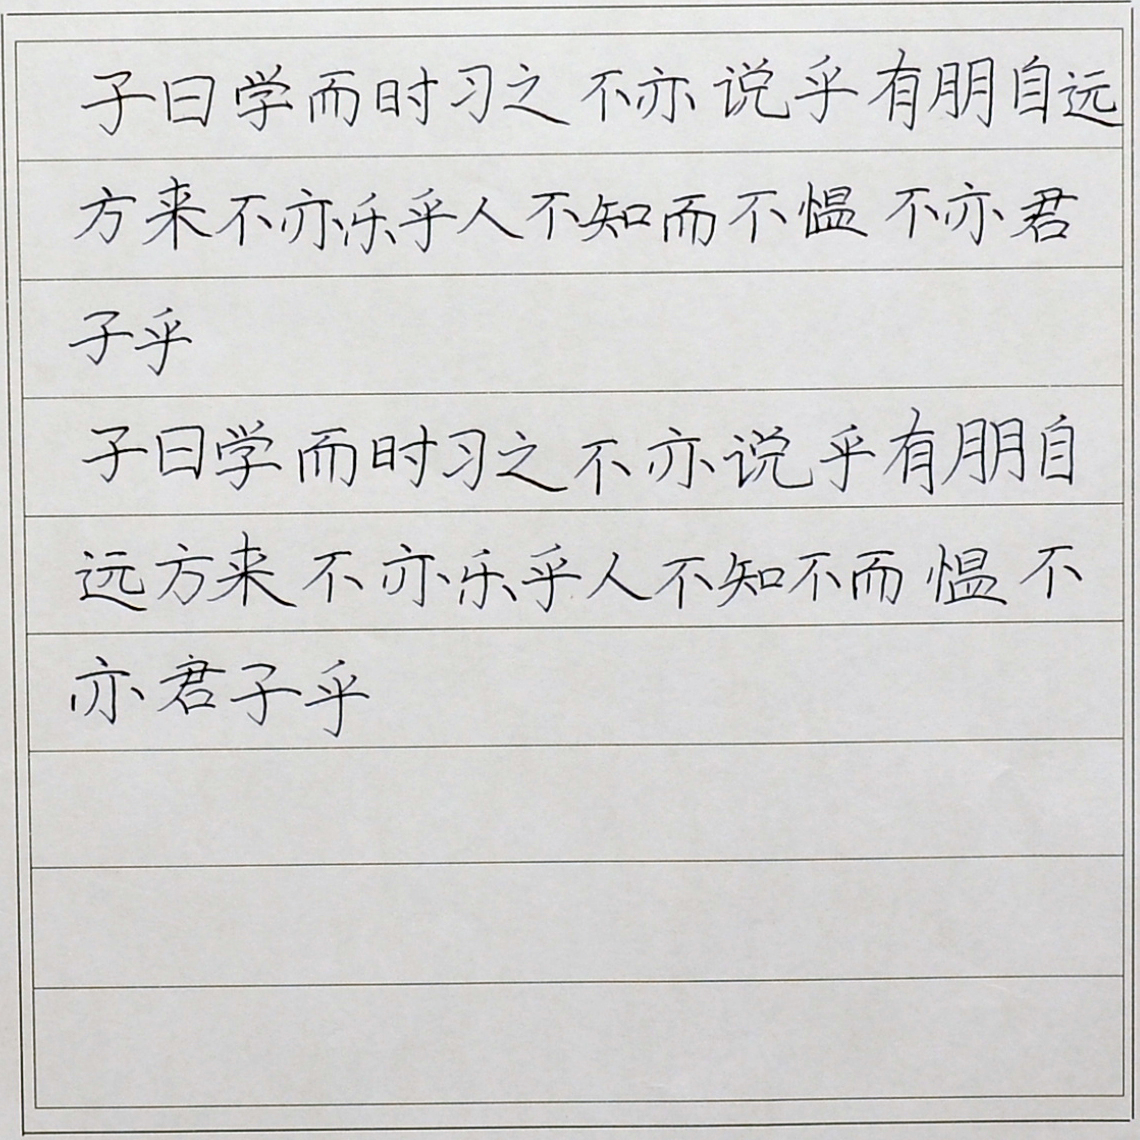 子曰学而时习之不亦说乎有朋自远
方来不亦乐乎人不知而不愠不亦君
子乎
子曰学而时习之不亦说乎有朋自
远方来不亦乐乎人不知不而愠不
亦君子乎